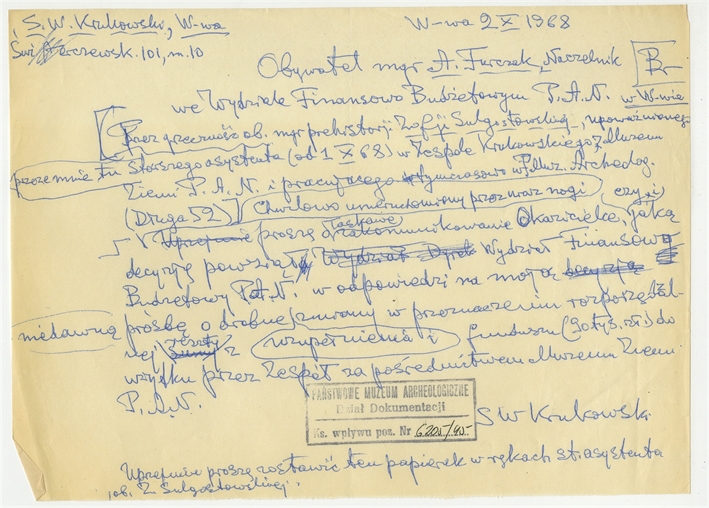 S. W. Krukowski, W-wa
W-wa 2 X 1968
Świerczewsk. 101, m. 10
Obywatel mgr A. Furczak, Naczelnik
we Wydziale Finansowo Budżetowym P.A.N. w W-wie
Przez grzeczność ob. mgr prehistorji Zofji Sulgostowskiej, upoważnionego
przeze mnie tu starszego asystenta (od 1 X 68) w Zespole Krukowskiego z Muzeum
Ziemi P.A.N. i pracującego tymczasowo w P. Muz. Archeolog.
(Długa 52) Chwilowo unieruchomiony przez uraz nogi
proszę łaskawie o zakomunikowanie Okaziciele, jaką
decyzję powziął Wydział Finansowo
Budżetowy P.A.N. w odpowiedzi na moją
niedawną prośbę o drobnej zmiany w przeznaczeniu rozporządzal-
nej reszty z uzupełnienia i funduszu (90 tyś. zł.) do
użytku przez Zespół za pośrednictwem Muzeum Ziemi
P.A.N.
PAŃSTWOWE MUZEUM ARCHEOLOGICZNE
Dział Dokumentacji
Ks. wpływu poz. Nr
S W Krukowski
Uprzejmie proszę zostawić ten papierek w rękach st. asystenta
ob. Z. Sulgostowskiej.